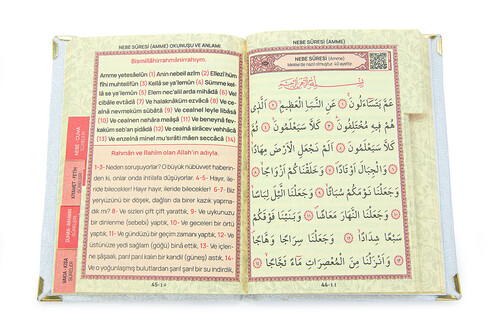 NEBE SÛRESİ (AMME) OKUNUŞU VE ANLAMI
Bismillâhirrahmânirrahîym.
Amme yetesâelûn (1) Anin nebeil azîm (2) Ellezî hüm
fîhi muhtelifûn (3) Kellâ se ya'lemûn (4) Sümme kel-
lâ se ya'lemûn (5) Elem nec'alil arda mihâdâ (6) Vel
cibâle evtâdâ (7) Ve halaknâküm ezvâcâ (8) Ve ce-
alnâ nevmeküm sübâtâ (9) Ve cealnel leyle libâsâ
(10) Ve cealnen nehâra meâşâ (11) Ve beneynâ fev-
kaküm seb'an şidâdâ (12) Ve cealnâ sirâcev vehhâcâ
(13) Ve enzelnâ minel mu'sırâti mâen seccâcâ (14)
Rahmân ve Rahîm olan Allah'ın adıyla.
1-3- Neden soruyorlar? O büyük nübüvvet haberin-
den ki, onlar onda ihtilafa düşüyorlar. 4-5- Hayır, ile-
ride bilecekler! Hayır, ileride bilecekler! 6-7- Biz
yeryüzünü bir döşek, dağları da birer kazık yapma-
dık mı? 8- Ve sizleri çift çift yarattık, 9- Ve uykunuzu
bir dinlenme (sebebi) yaptık, 10- Ve geceleri bir örtü
yaptık, 11- Ve gündüzü bir geçim zamanı yaptık, 12- Ve
üstünüze yedi sağlam (göğü) binâ ettik, 13- Ve içle-
rine şâşaalı, parıl parıl kalın bir kandil (güneş) astık, 14-
Ve o yoğunlaşmış bulutlardan şarıl şarıl bir su indirdik,
45-٤٥
NEBE SÛRESİ (AMME)
NEBE SÛRESİ (Amme)
Mekke'de nazil olmuştur. 40 ayettir.
بِسْمِ اللّٰهِ الرَّحْمٰنِ الرَّحِيمِ
عَمَّ يَتَسَٓاءَلُونَۚ ﴿١﴾ عَنِ النَّبَأِ الْعَظِيمِۙ ﴿٢﴾ اَلَّذِي
هُمْ فِيهِ مُخْتَلِفُونَۜ ﴿٣﴾ كَلَّا سَيَعْلَمُونَۙ ﴿٤﴾
ثُمَّ كَلَّا سَيَعْلَمُونَ ﴿٥﴾ اَلَمْ نَجْعَلِ الْاَرْضَ مِهَادًاۙ
﴿٦﴾ وَالْجِبَالَ اَوْتَادًاۖ ﴿٧﴾ وَخَلَقْنَاكُمْ اَزْوَاجًاۙ ﴿٨﴾
وَجَعَلْنَا نَوْمَكُمْ سُبَاتًاۙ ﴿٩﴾ وَجَعَلْنَا الَّيْلَ لِبَاسًاۙ
﴿١٠﴾ وَجَعَلْنَا النَّهَارَ مَعَاشًاۖ ﴿١١﴾ وَبَنَيْنَا فَوْقَكُمْ
سَبْعًا شِدَادًاۙ ﴿١٢﴾ وَجَعَلْنَا سِرَاجًا وَهَّاجًاۖ
﴿١٣﴾ وَاَنْزَلْنَا مِنَ الْمُعْصِرَاتِ مَٓاءً ثَجَّاجًاۙ ﴿١٤﴾